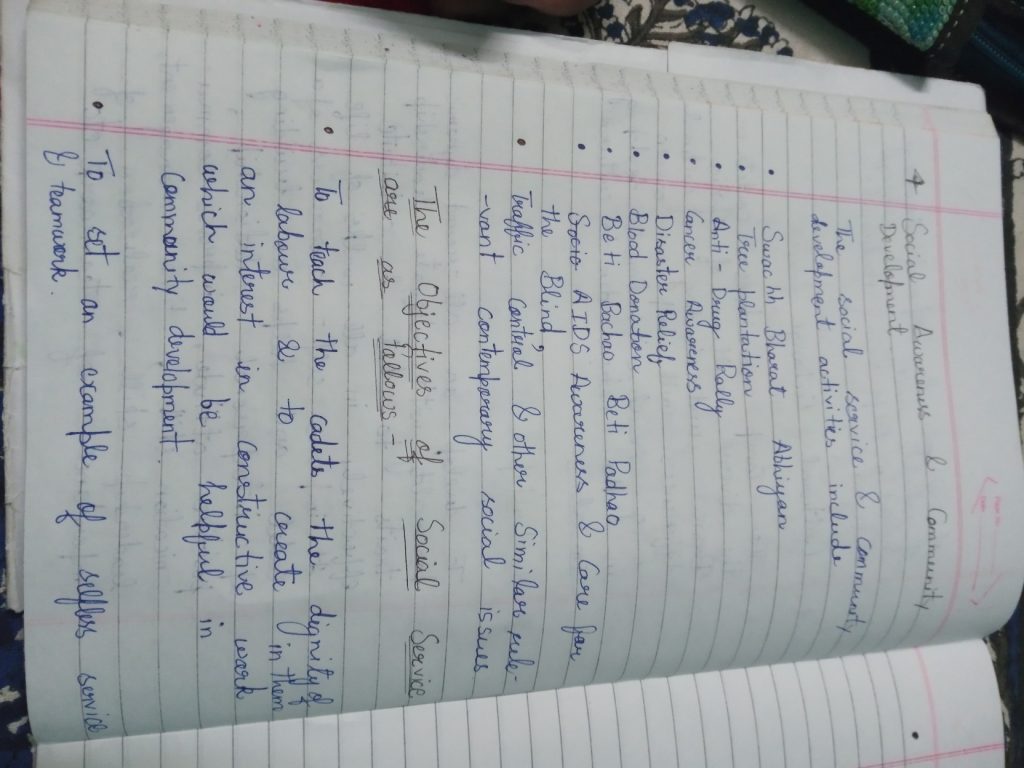 4 Social Awareness & Community
Development
The social service & community
development activities include
• Swachh Bharat Abhiyan
• Tree plantation
• Anti-Drug Rally
• Cancer Awareness
• Disaster Relief
• Blood Donation
• Beti Bachao Beti Padhao
• Socio AIDS Awareness & Care for
the Blind,
• Traffic Control & other Similars rele-
-vant contemporary social issues
The Objectives of Social Service
are as follows:-
• To teach the cadets the dignity of
labour & to create in them
an interest in constructive work
which would be helpful in
Community development.
• To set an example of selfless service
& teamwork.